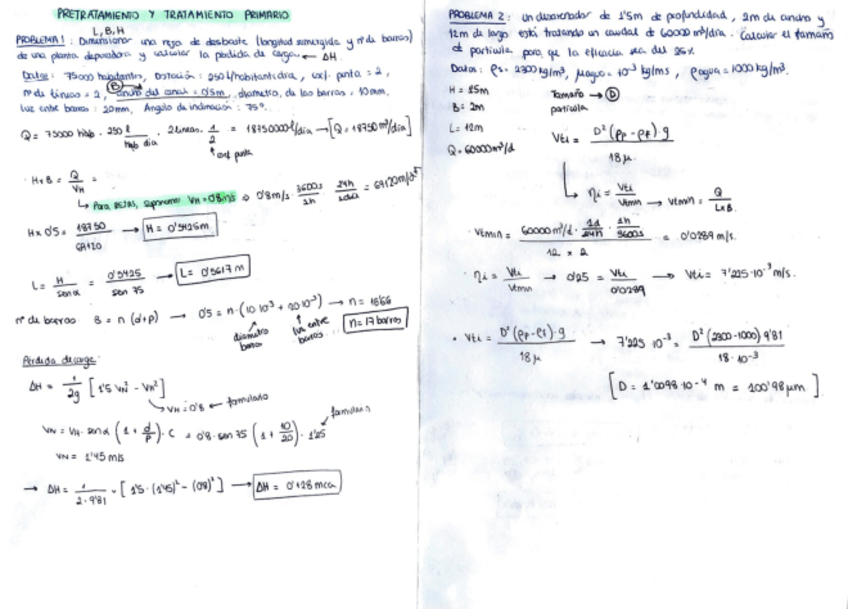 PRETRATAMIENTO Y TRATAMIENTO PRIMARIO
L, B, H
PROBLEMA 1: Dimensionar una reja de desbaste (longitud sumergida y nº de barros)
de una planta depuradora y calcular la pérdida de carga. ← ΔH
Datos: 75000 habitantes, Dotación: 250 l/habitante día, coef. punta = 2,
nº de líneas = 2, ancho del canal = 0'5m, diámetro, de las barras = 10mm,
B
luz entre barros: 20mm, Angulo de inclinación: 75º.
Q = 75000 hab · 250 l/hab día · 2 líneas · 1/2 = 18750000 l/día → [Q = 18750 m³/día]
↑ coef punta
· H×B = Q/VH =
↳ Para REJAS, suponemos VH = 0'8 m/s ⇒ 0'8 m/s · 3600s/1h · 24h/1día = 69120 m/d
H × 0'5 = 18750/69120 → H = 0'5425m
L = H/senα = 0'5425/sen 75 → L = 0'5617 m
nº de barros B = n (d+p) → 0'5 = n·(10·10⁻³ + 20·10⁻³) → n = 16'66
diámetro barros luz entre barros n = 17 barros
Pérdida de carga:
ΔH = 1/2g [1'5 VN² − VH²]
↳ VH = 0'8 ← formulario
VN = VH · senα (1 + d/p) · C = 0'8 · sen 75 (1 + 10/20) · 1'25
formulario
VN = 1'45 m/s
→ ΔH = 1/2·9'81 · [1'5 · (1'45)² − (0'8)²] → ΔH = 0'128 mca
PROBLEMA 2: un desarenador de 1'5m de profundidad, 2m de ancho y
12m de largo está tratando un caudal de 60000 m³/día. Calcular el tamaño
de partícula para que la eficacia sea del 25%
Datos: ρs = 2300 kg/m³, μagua = 10⁻³ kg/ms, ρagua = 1000 kg/m³.
H = 1'5m Tamaño → D
B = 2m partícula
L = 12m
Q = 60000 m³/d
Vti = D² (ρp − ρf) · g / 18μ
↳ ηi = Vti/Vtmin → Vtmin = Q/L×B
· Vtmin = 60000 m³/d · 1d/24h · 1h/3600s / 12 × 2 = 0'0289 m/s.
· ηi = Vti/Vtmin → 0'25 = Vti/0'0289 → Vti = 7'225·10⁻³ m/s.
• Vti = D² (ρp − ρf) · g / 18μ → 7'225·10⁻³ = D² (2300 − 1000) 9'81 / 18·10⁻³
[D = 1'0098·10⁻⁴ m = 100'98 μm].